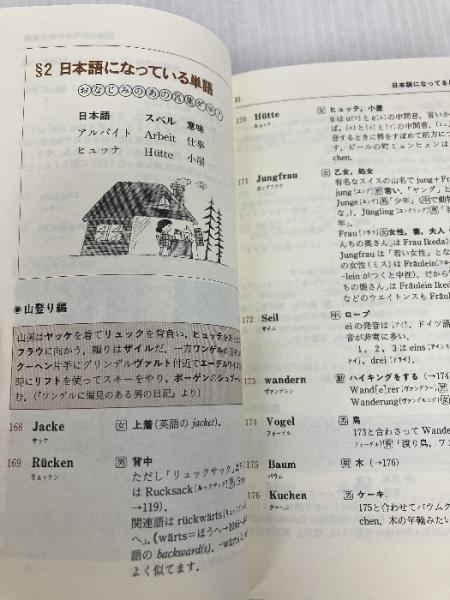 §2 日本語になっている単語
おなじみのあの言葉が
日本語 スペル 意味
アルバイト Arbeit 仕事
ヒュッテ Hütte 小屋
◉山登り編
山男はヤッケを着てリュックを背負い、ヒュッテを
フラウに向かう。頼りはザイルだ。一方ワンゲル
クーヘン片手にグリンデルヴァルト付近でエーデルワイ
時にリフトを使ってスキーをやり、ボーゲンのシュプー
む。(『ワンゲルに偏見のある男の日記』より)
168 Jacke 女 上着(英語の jacket).
ヤッケ
169 Rücken 男 背中
リュッケン ただし「リュックサック」
は Rucksack [ルックザック] 男
→119).
関連語は rückwärts
へ」. (wärts=ほうへ→
語の backward(s). -wärts
よく似てます.
81 日本語になっている
170 Hütte 女 ヒュッテ, 小屋
ヒュッテ ü は u [ウ] と e [エ] の中間音. 言いか
ば, [ウ] と [エ] の中間音.
音するときに唇をすぼめて前方に
す. ビールの町ミュンヒェンは
chen.
171 Jungfrau 女 乙女, 処女
ユングフラウ 有名なスイスの山名で jung+F
junge [ユンゲ] 形 若い, 「ヤング」と
Junge [ユンゲ] 男 「少年」 (中で動物
な」), Jüngling [ユングリング] 男 「若
年.
Frau [フラウ] 女 女性, 妻, 夫人
んちの奥さん」は Frau Ikeda
Jungfrau は「若い女性」となん
の女性(ミス)は Fräulein
-lein がつくと中性). だから
んちの娘さん」は Fräulein Ikeda
などのウエイトレスも Fräulein
172 Seil 中 ロープ
ザイル ei の発音は [アイ]. ドイツ語
音が非常に多い.
1, 2, 3 は eins
ァイ], drei [ドライ].
173 wandern 動 ハイキングをする (→174)
ヴァンデルン Wand[e]rer [ヴァンデラー] 男
Wanderung [ヴァンデルング] 女
174 Vogel 男 鳥
フォーゲル 173と合わさって Wander
ーフォーゲル] 男 「渡り鳥, ワ
175 Baum 男 木 (→176)
バウム
176 Kuchen 男 ケーキ.
クーヘン 175と合わせてバウムク
chen. 木の年輪みたい